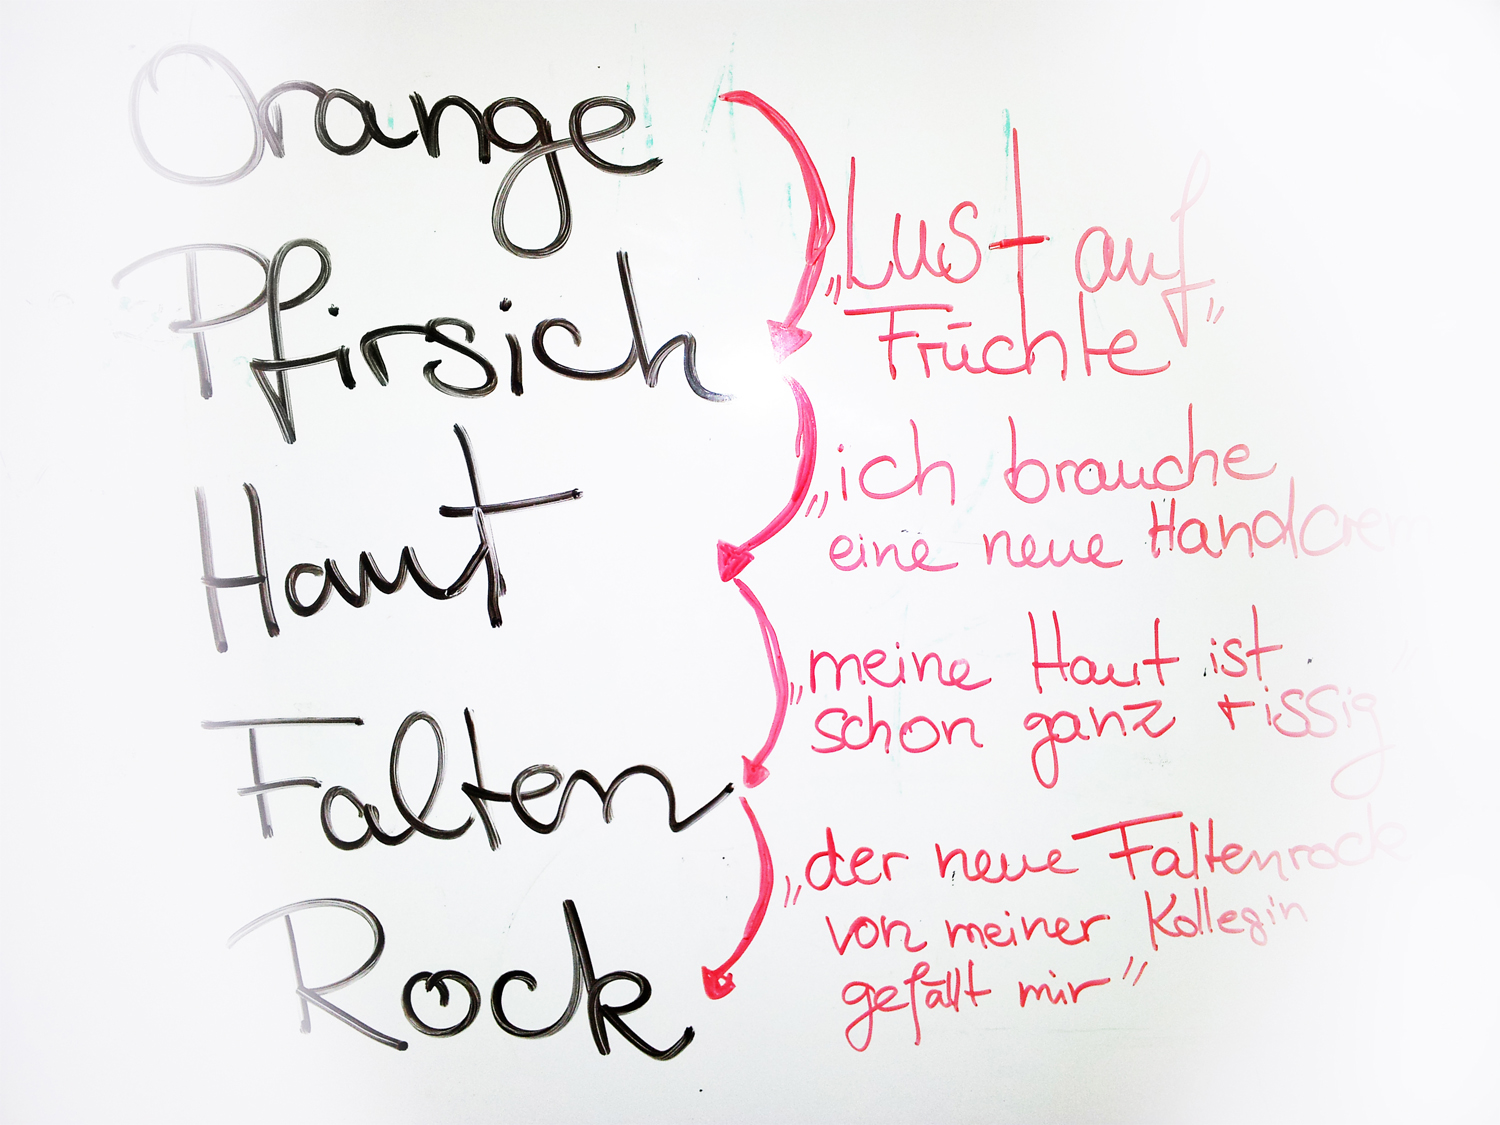 Orange
Pfirsich
Haut
Falten
Rock
„Lust auf
Früchte"
„ich brauche
eine neue Handcrem
„meine Haut ist
schon ganz rissig
„der neue Faltenrock
von meiner Kollegin
gefällt mir"